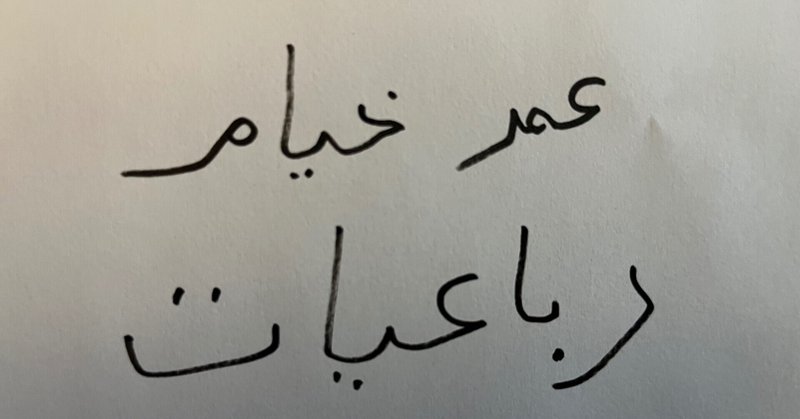 عمر خیام
رباعیات